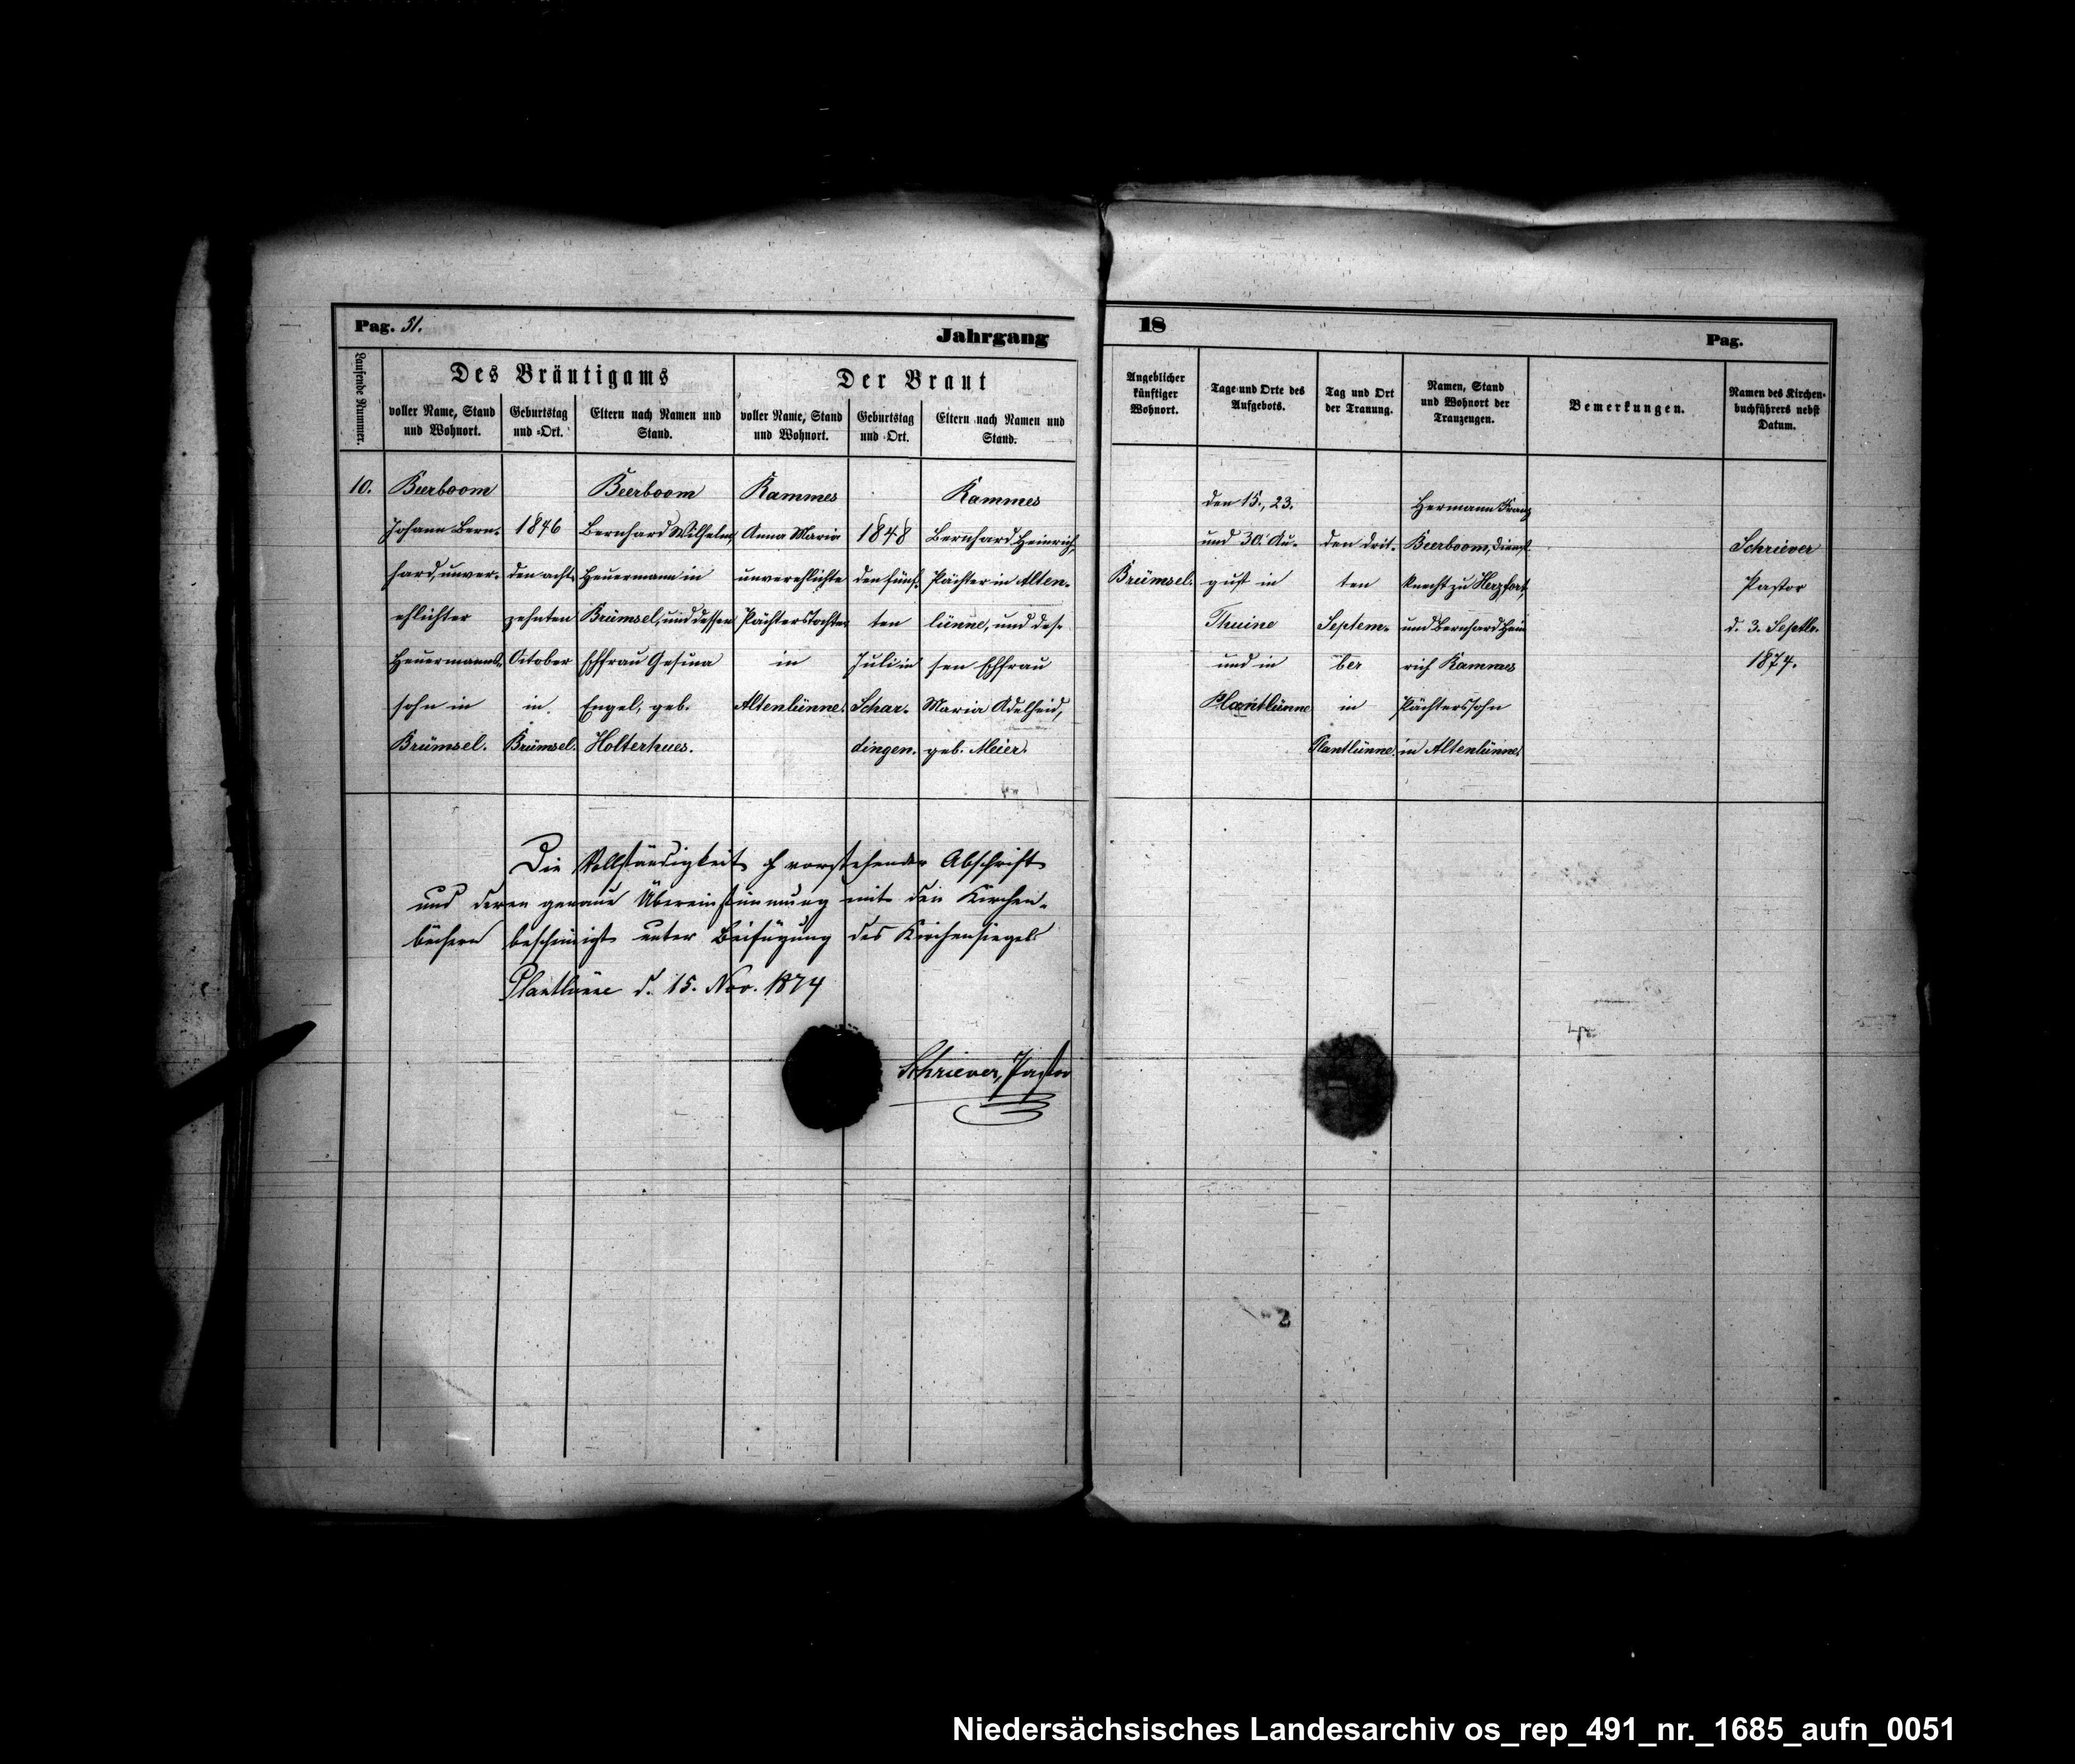 Pag. 51.
Jahrgang
18
Pag.
Laufende Nummer.
Des Bräutigams
voller Name, Stand
und Wohnort.
Geburtstag
und Ort.
Eltern nach Namen und
Stand.
Der Braut
voller Name, Stand
und Wohnort.
Geburtstag
und Ort.
Eltern nach Namen und
Stand.
Angeblicher
künftiger
Wohnort.
Tage und Orte des
Aufgebots.
Tag und Ort
der Trauung.
Namen, Stand
und Wohnort der
Trauzeugen.
Bemerkungen.
Namen des Kirchen-
buchführers nebst
Datum.
10.
Beerboom
Johann Bern-
hard, unver-
ehlichter
Heuermanns-
sohn in
Brümsel.
1846
den acht-
zehnten
October
in
Brümsel.
Beerboom
Bernhard Wilhelm,
Heuermann in
Brümsel, und dessen
Ehfrau Gesina
Engel, geb.
Holterhues.
Kammes
Anna Maria
unverehlichte
Pächterstochter
in
Altenlünne.
1848
den fünf-
ten
Juli in
Schar-
dingen.
Kammes
Bernhard Heinrich,
Pächter in Alten-
lünne, und des-
sen Ehfrau
Maria Adelheid,
geb. Meier.
Brümsel.
den 15., 23.
und 30. Au-
gust in
Thuine
und in
Plantlünne
den drit-
ten
Septem-
ber
in
Plantlünne.
Hermann Franz
Beerboom, Dienst-
knecht zu Herzfort,
und Bernhard Hein
rich Kammes
Pächterssohn
in Altenlünne.
Schriever
Pastor
d. 3. Septbr.
1874.
Die Vollständigkeit vorstehender Abschrift
und deren genaue Übereinstimmung mit den Kirchen-
büchern bescheinigt unter Beifügung des Kirchensiegels
Plantlünne d. 15. Nov. 1874
Schriever, Pastor
Niedersächsisches Landesarchiv os_rep_491_nr._1685_aufn_0051